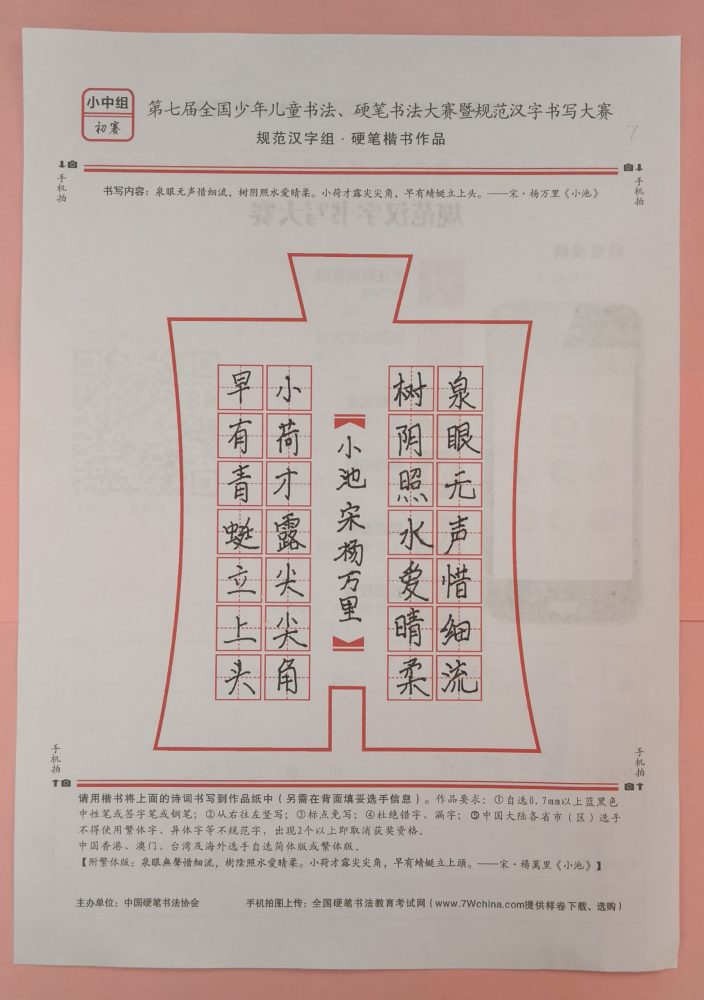 小中组
初赛
第七届全国少年儿童书法、硬笔书法大赛暨规范汉字书写大赛
规范汉字组·硬笔楷书作品
7
手机拍
手机拍
书写内容：泉眼无声惜细流，树阴照水爱晴柔。小荷才露尖尖角，早有蜻蜓立上头。——宋·杨万里《小池》
泉眼无声惜细流
树阴照水爱晴柔
小池 宋 杨万里
小荷才露尖尖角
早有青蜓立上头
手机拍
手机拍
请用楷书将上面的诗词书写到作品纸中（另需在背面填妥选手信息）。作品要求：①自选0.7mm以上蓝黑色
中性笔或签字笔或钢笔；②从右往左竖写；③标点免写；④杜绝错字、漏字；⑤中国大陆各省市（区）选手
不得使用繁体字、异体字等不规范字，出现2个以上即取消获奖资格。
中国香港、澳门、台湾及海外选手自选简体版或繁体版。
【附繁体版：泉眼無聲惜細流，樹陰照水愛晴柔。小荷才露尖尖角，早有蜻蜓立上頭。——宋·楊萬里《小池》】
主办单位：中国硬笔书法协会 手机拍图上传：全国硬笔书法教育考试网（www.7Wchina.com提供样卷下载、选购）